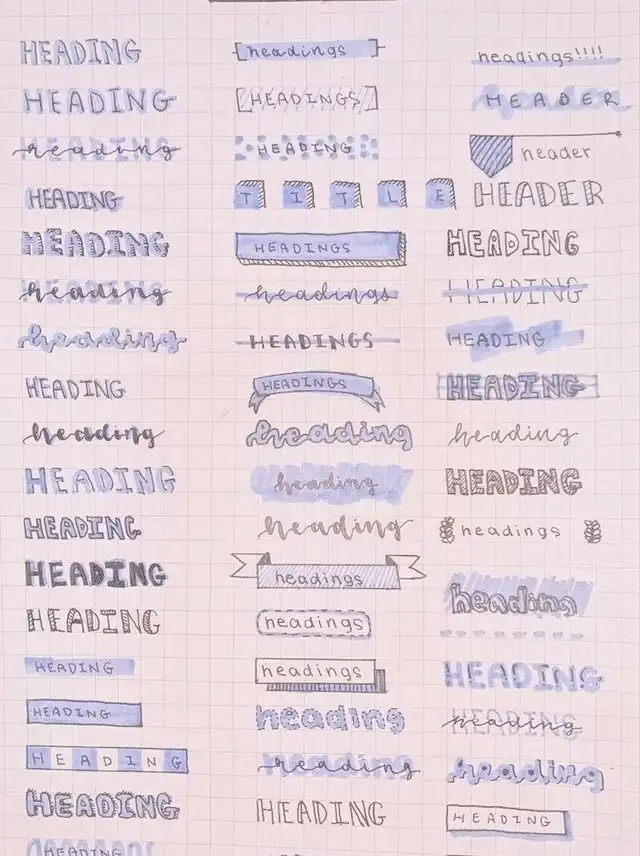 HEADING
HEADING
heading
HEADING
HEADING
heading
heading
HEADING
heading
HEADING
HEADING
HEADING
HEADING
HEADING
HEADING
HEADING
HEADING
HEADING
headings
HEADINGS
HEADING
TITLE
HEADINGS
headings
HEADINGS
HEADINGS
heading
heading
heading
headings
headings
headings
heading
heading
HEADING
headings!!!!
HEADER
header
HEADER
HEADING
HEADING
HEADING
HEADING
heading
HEADING
headings
heading
HEADING
heading
heading
HEADING